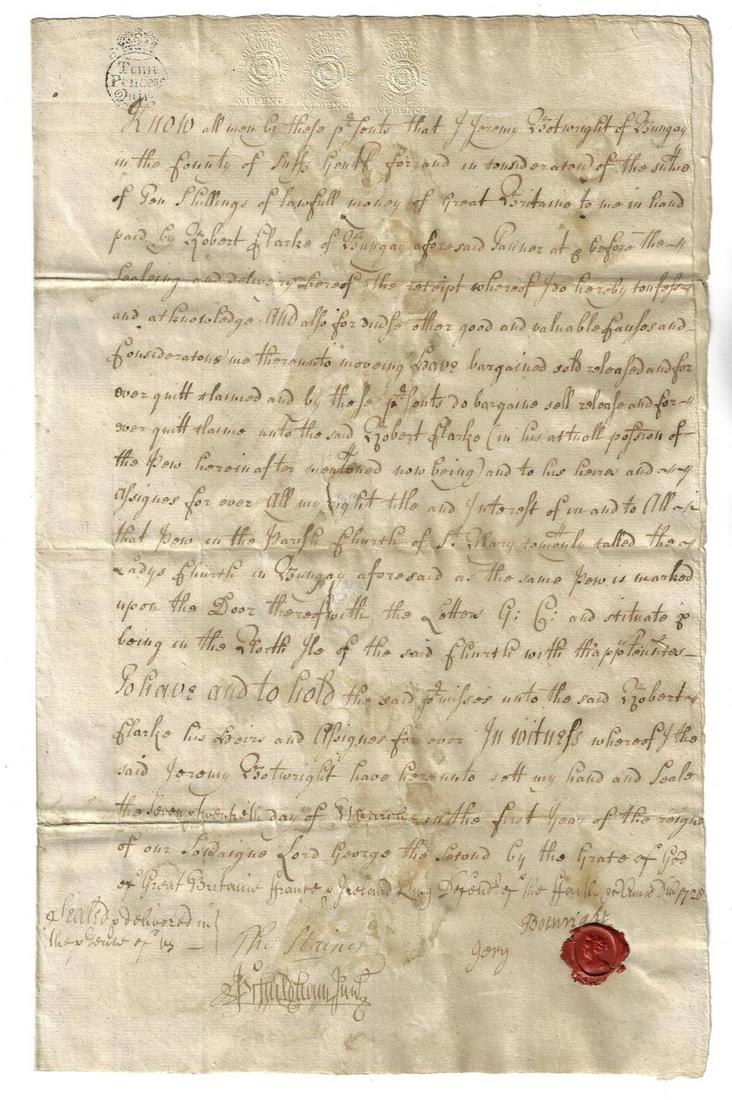 Tenn
Pence p
Quire
VI PENCE VI PENCE VI PENCE
Know all men by these p'sents that I Jeremy Botwright of Bungay
in the County of Suff Gent for and in consideracon of the sume
of Ten Shillings of lawfull money of Great Britaine to me in hand
paid by Robert Clarke of Bungay aforesaid Tanner at & before the
Sealeing and delivery hereof the receipt whereof I do hereby confess
and acknowledge And also for diverse other good and valuable Causes and
Consideratons me thereunto moveing Have bargained sold released and for
ever quitt claimed and by these p'sents do bargaine sell release and for
ever quitt claime unto the said Robert Clarke (in his actuall possion of
the Pew hereinafter mentioned now being) and to his heires and
Assignes for ever All my right title and Interest of in and to All
that Pew in the Parish Church of St. Mary comonly called the
Ladys Church in Bungay aforesaid as the same Pew is marked
upon the Door thereof with the Letters G: C: and scituate &
being in the North Ile of the said Church with th'app'tenn'ces
To have and to hold the said p'misses unto the said Robert
Clarke his Heirs and Assignes for ever In witness whereof I the
said Jeremy Botwright have hereunto sett my hand and Seale
the seven twentieth day of March in the first Year of the reigne
of our Soveraigne Lord George the Second by the Grace of God
of Great Britaine France & Ireland King Defend'r of the Faith &c Anno Dni 1728
Sealed & delivered in
the p'sence of us
Tho
Jery Botwright